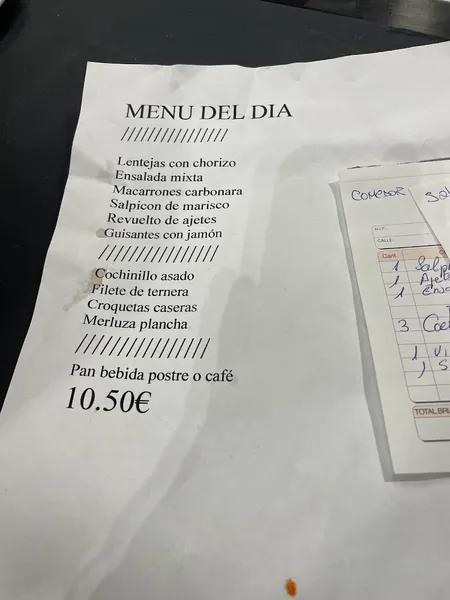 MENU DEL DIA
////////////////
Lentejas con chorizo
Ensalada mixta
Macarrones carbonara
Salpicon de marisco
Revuelto de ajetes
Guisantes con jamón
////////////////
Cochinillo asado
Filete de ternera
Croquetas caseras
Merluza plancha
////////////////
Pan bebida postre o café
10.50€
COMEDOR
N.I.F.
CALLE
Cant.
1
1
1
3
1
1
TOTAL